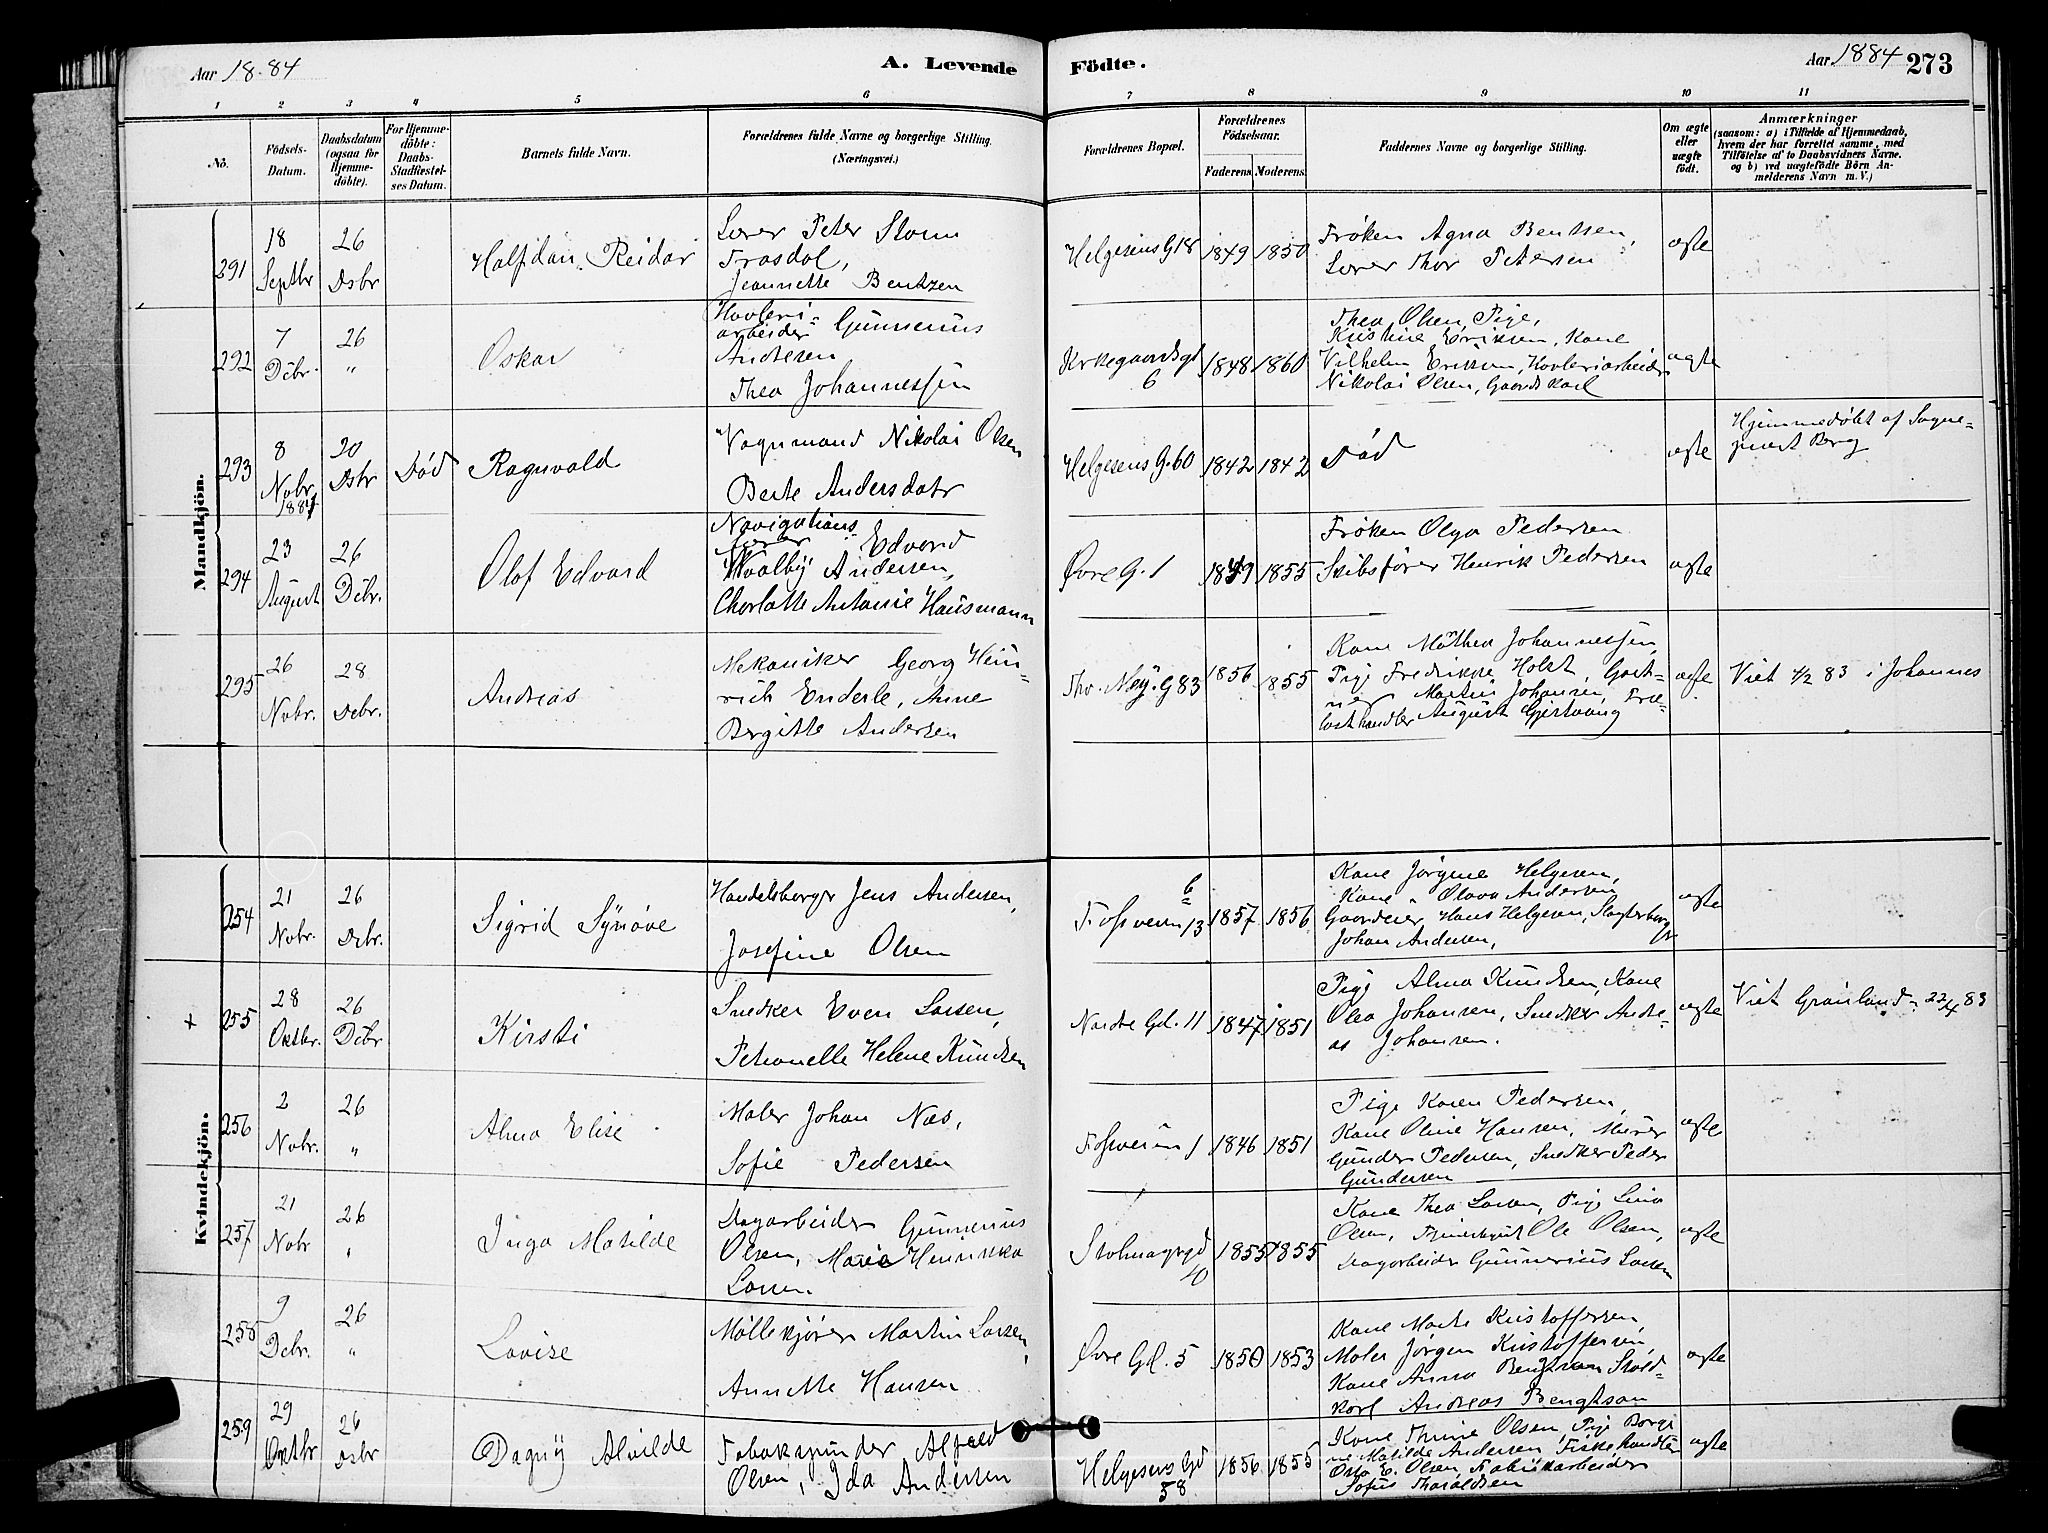 Aar 1884
A. Levende
Födte.
Aar 1884
273
1
2
3
4
5
6
7
8
9
10
11
No.
Födsels-
Datum.
Daabsdatum
(ogsaa for
Hjemme-
döbte).
For Hjemme-
döbte:
Daabs-
Stadfæstel-
ses Datum.
Barnets fulde Navn.
Forældrenes fulde Navne og borgerlige Stilling.
(Næringsvei.)
Forældrenes Bopæl.
Forældrenes
Födselsaar.
Faderens
Moderens
Faddernes Navne og borgerlige Stilling.
Om ægte
eller
uægte
födt.
Anmærkninger
(saasom: a) i Tilfælde af Hjemmedaab,
hvem der har forrettet samme, med
Tilföielse af to Daabsvidners Navne.
og b) ved uægtefödte Börn An-
melderens Navn m. V.)
Mandkjön.
291
18
Septbr
26
Dsbr
Halfdan Reidar
Lærer Peter Storm
Frosdal,
Jeannette Bentzen
Helgesens G 18
1849
1850
Frøken Agna Bentzen,
Lærer Thor Petersen
ægte
292
7
Dcbr.
26
"
Oskar
Høvleri-
arbeider Gunnerius
Andresen
Thea Johannessen
Kirkegaardsgd
6
1848
1860
Thea Olsen Pige,
Kristine Eriksen, Kone
Vilhelm Eriksen, Høvleriarbeider
Nikolai Olsen, Gaardskarl
ægte
293
8
Nobr
1881
20
Dsbr
Død
Ragnvald
Vognmand Nikolai Olsen
Berte Andersdatr
Helgesens G. 60
1842
1842
Død
ægte
Hjemmedøbt af Sogne-
prest Berg
294
23
August
26
Dcbr.
Olaf Edvard
Navigations-
Edvard
Hvalby Andersen,
Charlotte Antonie Hausmann
Øvre G. 1
1849
1855
Frøken Olga Pedersen
Skibsfører Henrik Pedersen
ægte
295
26
Nobr.
28
Dcbr.
Andreas
Mekaniker Georg Hein-
rich Enderle, Anne
Birgitte Andersen
Thv. Mey. G 83
1856
1855
Kone Mathea Johannessen,
Pige Fredrikke Holst, Gart-
ner Martin Johansen, Træ-
lasthandler August Gjertvang
ægte
Viet 4/2 83 i Johannes
Kvindekjön.
254
21
Nobr.
26
Dcbr.
Sigrid Synøve
Handelsborger Jens Andersen,
Josefine Olsen
6
Fossveien 13
1857
1856
Kone Jørgine Helgesen,
Kone " Olava Andersen
Gaardeier Hans Helgesen, Slagterborger
Johan Andersen,
ægte
+
255
28
Oktbr.
26
Dcbr
Kirsti
Snedker Even Larsen,
Petronelle Helene Knudsen
Nordre Gd. 11
1847
1851
Pige Alma Knudsen, Kone
Olea Johansen, Snedker Andre-
as Johansen.
ægte
Viet Grønland 22/4 83
256
2
Nobr.
26
"
Alma Elise
Maler Johan Næs,
Sofie Pedersen
Fossveien 1
1846
1851
Pige Karen Pedersen,
Kone Oline Hansen, Murer
Gunder Pedersen, Snedker Peder
Gundersen
ægte
257
21
Nobr
26
"
Inga Matilde
Dagarbeider Gunnerius
Olsen, Maria Henrikka
Larsen
Stolmagergd
40
1855
1855
Kone Thea Larsen, Pige Lina
Olsen, Ole Olsen,
Dagarbeider Gunnerius Larsen
ægte
258
9
Dcbr.
26
"
Lovise
Møllekjører Martin Larsen,
Annette Hansen
Øvre Gd. 5
1850
1853
Kone Marte Kristoffersen,
Maler Jørgen Kristoffersen,
Kone Anna Bengtson Stald-
karl Andreas Bengtson
ægte
259
29
Oktbr
26
Dsbr
Dagny Alvilde
Tobakspinder Alfred
Olsen, Ida Andersen
Helgesens Gd
58
1856
1855
Kone Thrine Olsen, Pige Borgi
ne Matilde Andersen Fiskehandler
Osto E. Olsen, Fabrikarbeider
Sofus Tharaldsen
ægte